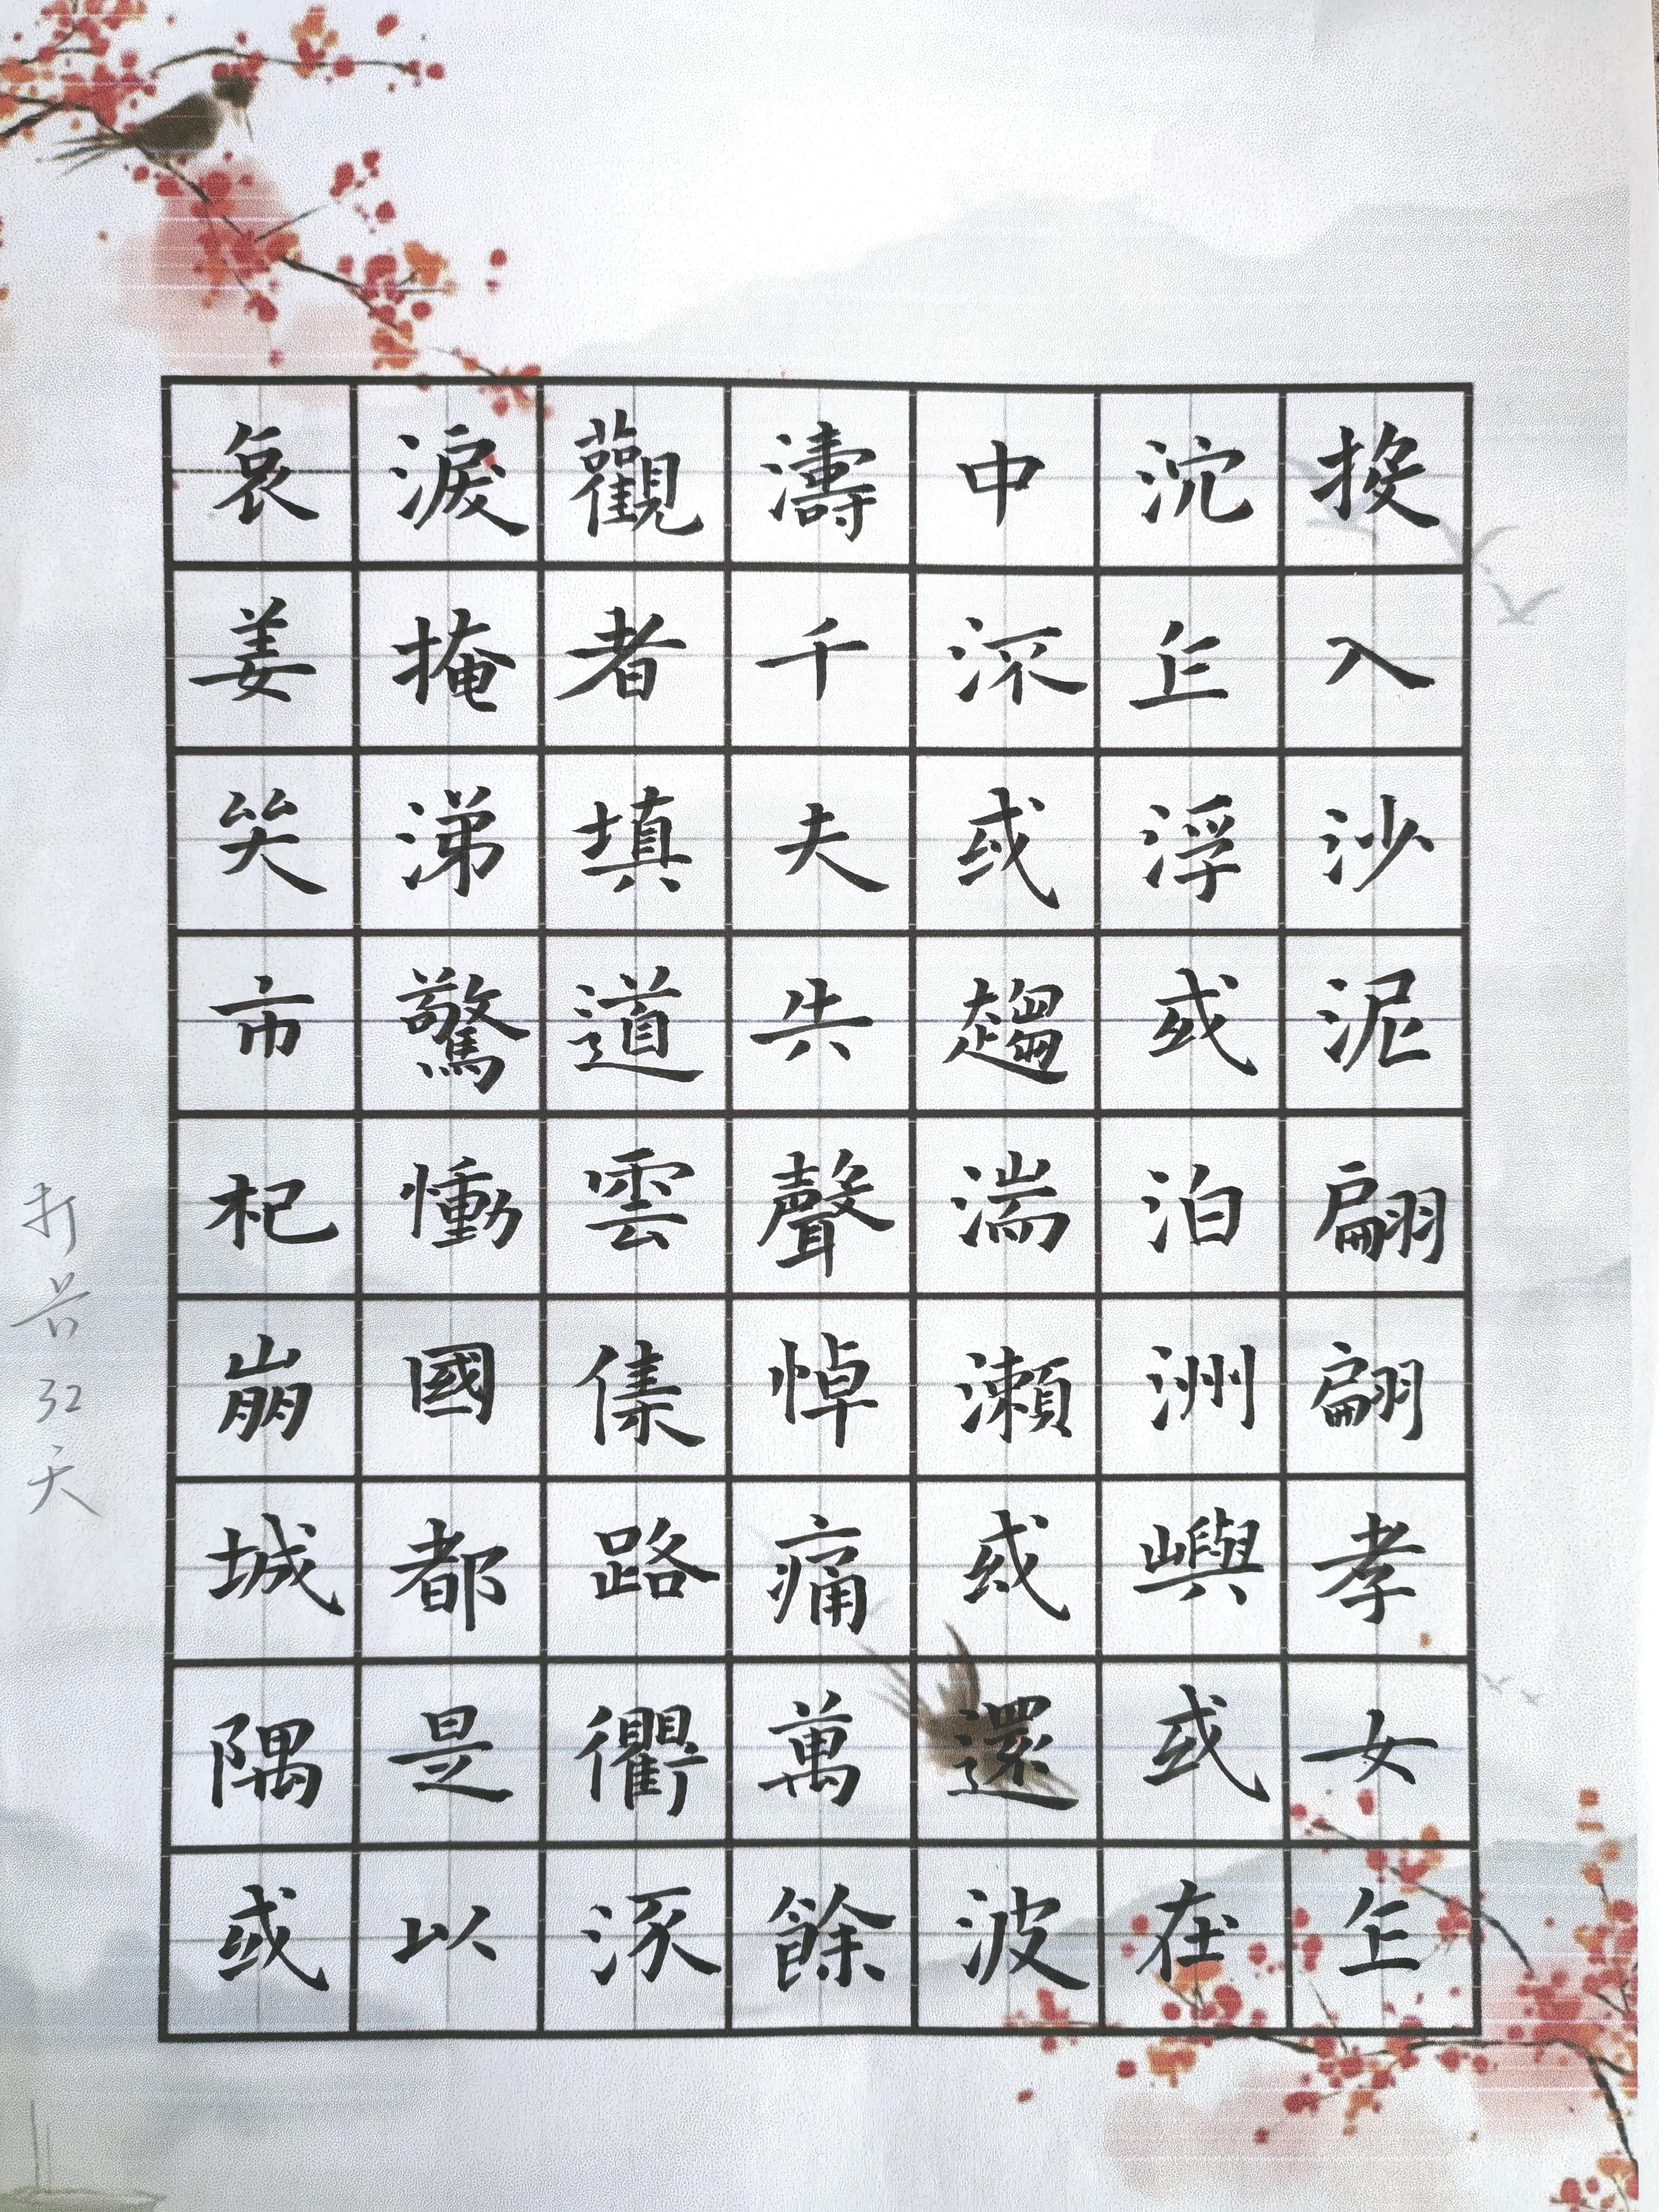 投入沙泥翩翩孝女乍
沉乍浮或泊洲嶼或在
中流或趨湍瀨或還波
濤千夫失聲悼痛萬餘
觀者填道雲集路衢流
淚掩涕驚慟國都是以
哀姜哭市杞崩城隅或
打32天